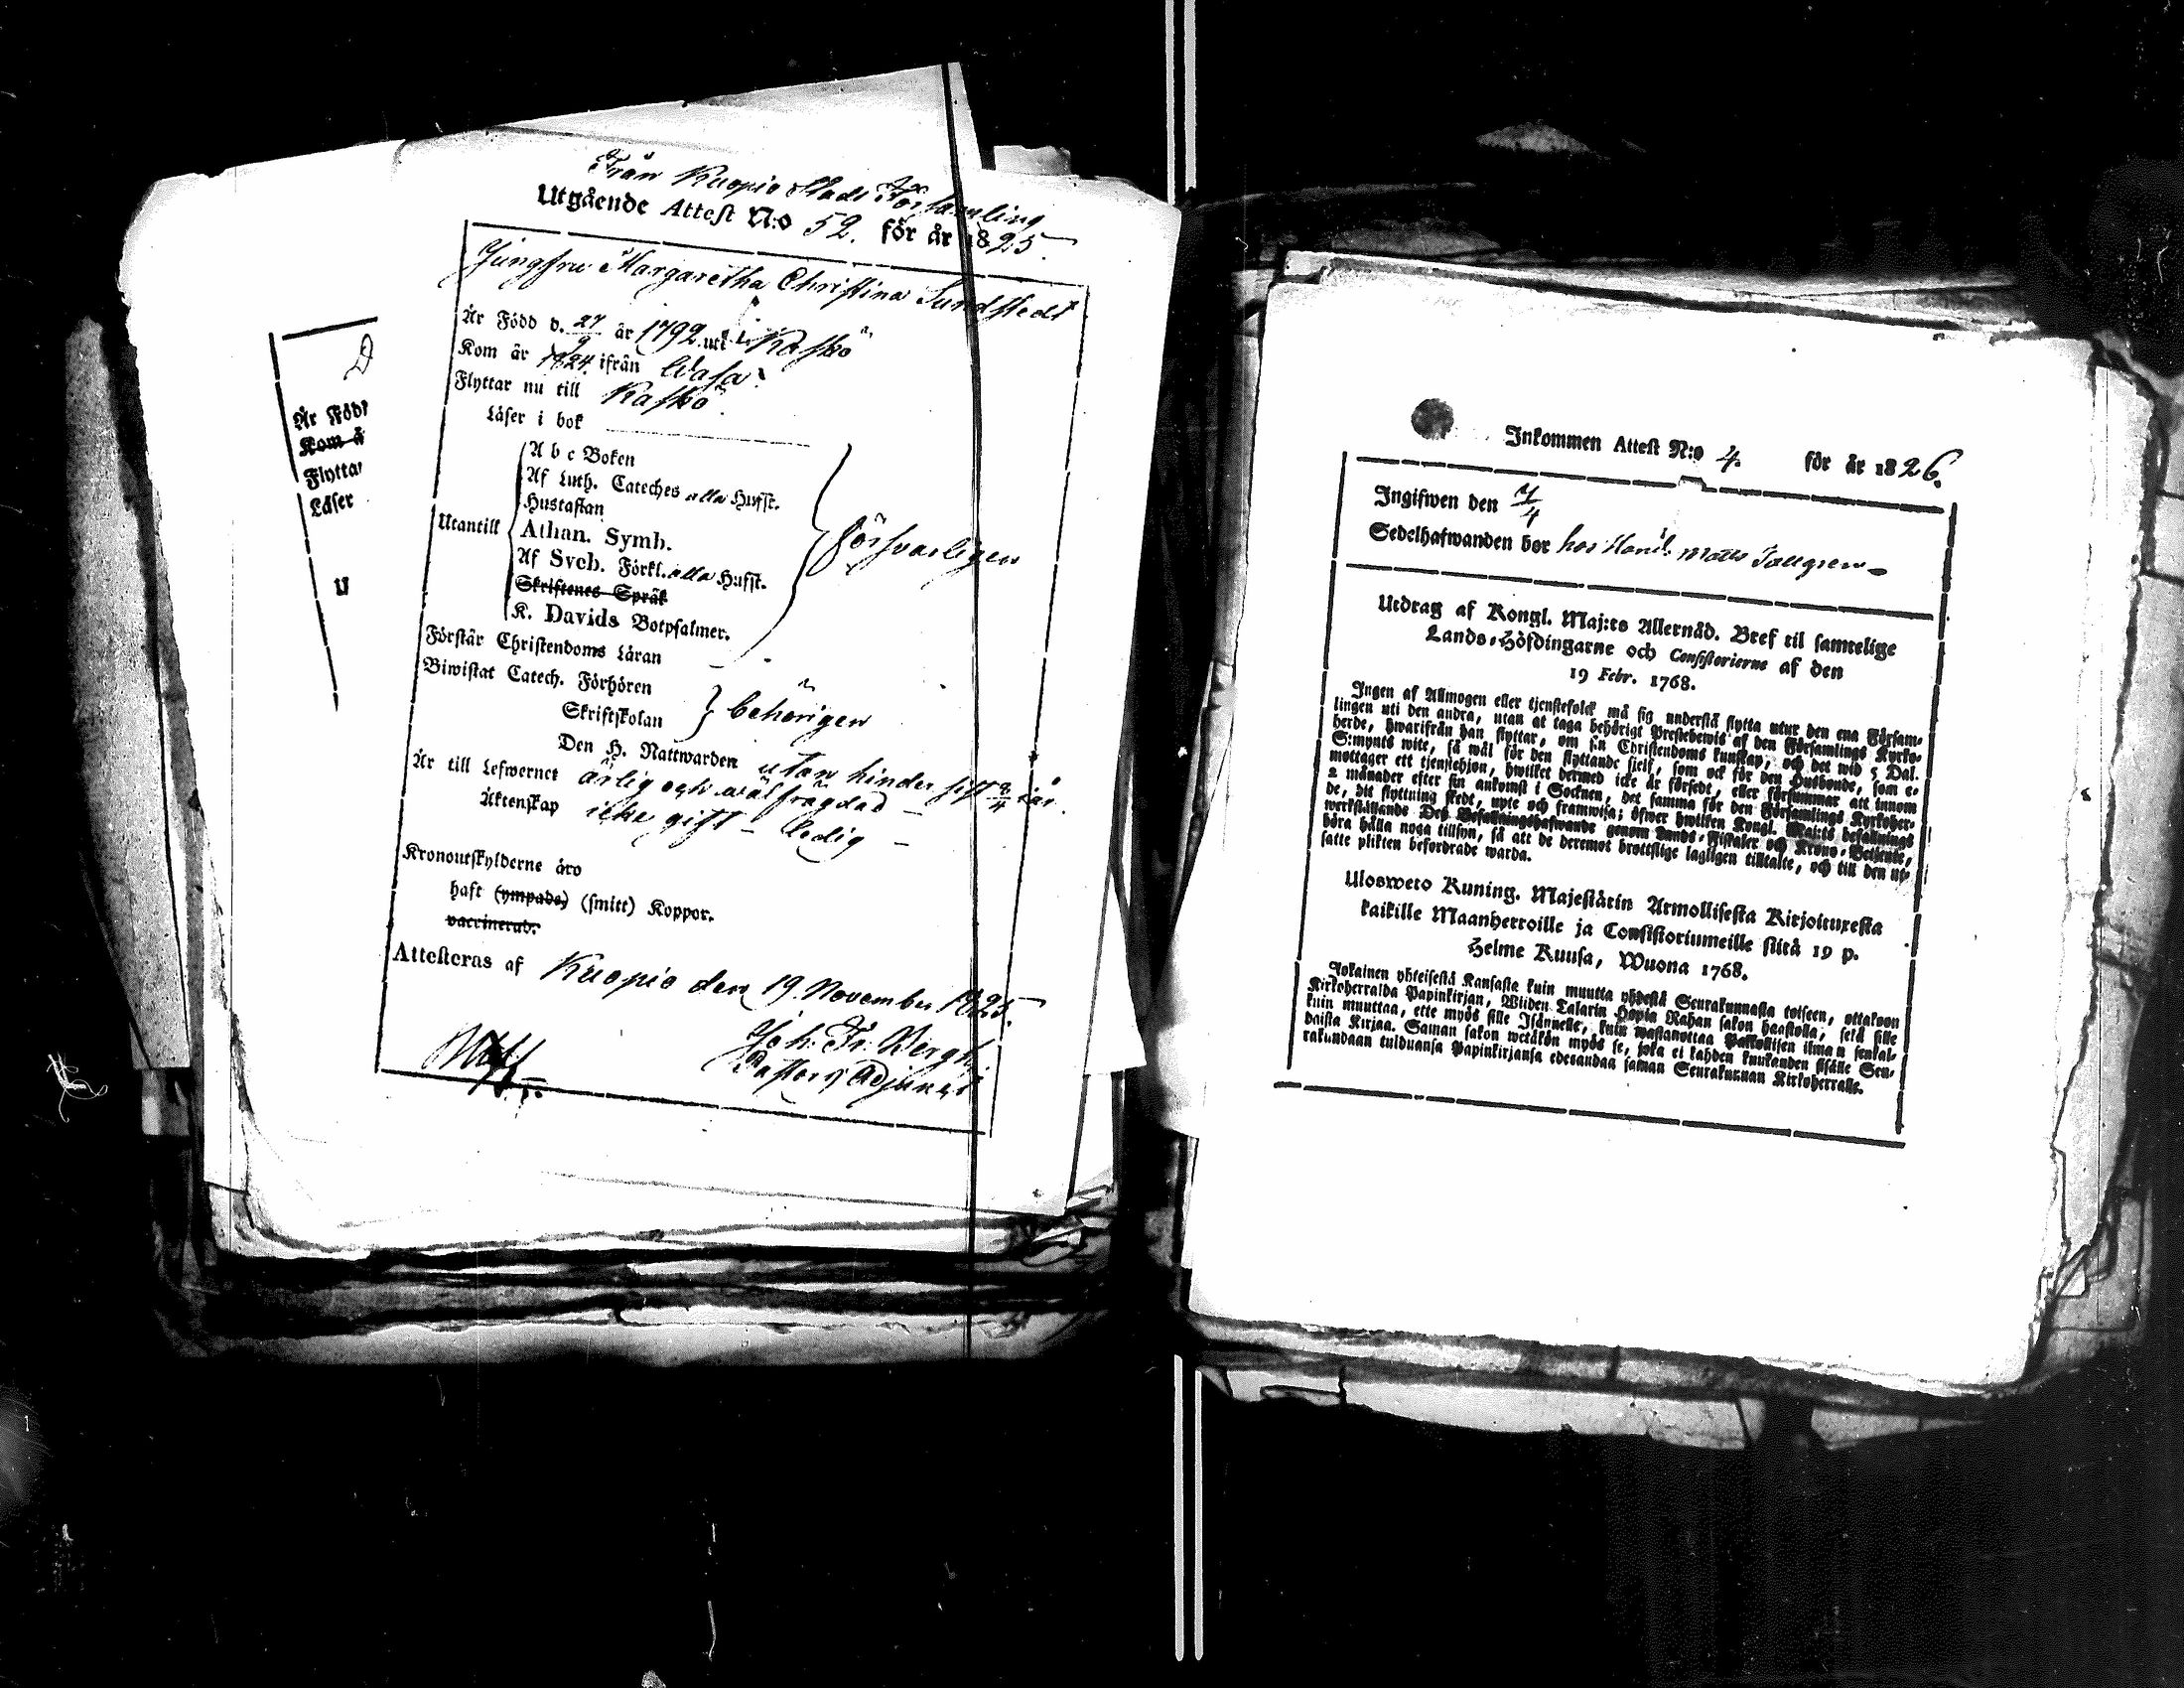 Från Kuopio Stads Församling
Utgående Attest N:o 52. för år 1825.
Jungfru Margaretha Christina Sundstedt
Är Född d. 27/9 år 1792 uti Kaskö
Kom år 1824 ifrån Wasa.
Flyttar nu till Kaskö.
Läser i bok
A b c Boken
Af Luth. Cateches alla Hufst.
Hustaflan
Utantill Athan. Symb. försvarligen
Af Sveb. Förkl. alla Hufst.
Skriftenes Språk
K. Davids Botpsalmer.
Förstår Christendoms Läran
Biwistat Catech. Förhören
Skriftskolan behörigen
Den H. Nattwarden utan hinder sist i år.
Är till Lefwernet ärlig och wälfrägdad
Äktenskap icke gift - ledig -
Kronoutskylderne äro
haft (ympade) (smitt) Koppor.
vaccinerad.
Attesteras af Kuopio den 19 November 1825.
Joh. Fr. Bergh
Pastors Adjunct
Är Föd
Kom å
Flytta
Läser
U
Inkommen Attest N:o 4. för år 1826.
Ingifwen den 7/4
Sedelhafwanden bor hos Hand. Matts
Utdrag af Kongl. Maj:ts Allernåd. Bref til samtelige
Lands-Höfdingarne och Consistorierne af den
19 Febr. 1768.
Ingen af Allmogen eller tjenstefolck må sig understå flytta utur den ena Försam-
lingen uti den andra, utan at taga behörigt Prestebewis af den Församlings Kyrko-
herde, hwarifrån han flyttar, om sin Christendoms kunskap, och det wid 5 Dal.
S:mynts wite, så wäl för den flyttande sjelf, som ock för den Husbonde, som e-
mottager ett tjenstehjon, hwilket dermed icke är försedt, eller försummar att innom
2 månader efter sin ankomst i Socknen, det samma för den Församlings Kyrkoher-
de, dit flyttning skedt, upte och framwisa; öfwer hwilken Kongl. Maj:ts befallnings
werkställande Deß Befallningshafwande genom Lands-Fiskaler och Krono-Betjente,
böra hålla noga tillsyn, så att de deremot brottslige lagligen tilltalte, och till den ut-
satte plikten befordrade warda.
Uloswero Kuning. Majestätin Armollisesta Kirjoituxesta
kaikille Maanherroille ja Consistoriumeille siitä 19 p.
Helme Kuusa, Wuona 1768.
Jokainen yhteisestä Kansasta kuin muutta yhdestä Seurakunnasta toiseen, ottakoon
Kirkoherralda Papinkirjan, Wiiden Talarin Hopia Rahan sakon haastolla, sekä sille
kuin muuttaa, ette myös sille Isännelle, kuin wastanottaa Palkollisen ilman senkal-
daista Kirjaa. Saman sakon wetäkön myös se, joka ei kahden kuukauden sisälle Seu-
rakundaan tulduansa Papinkirjansa edesandaa saman Seurakunnan Kirkoherralle.